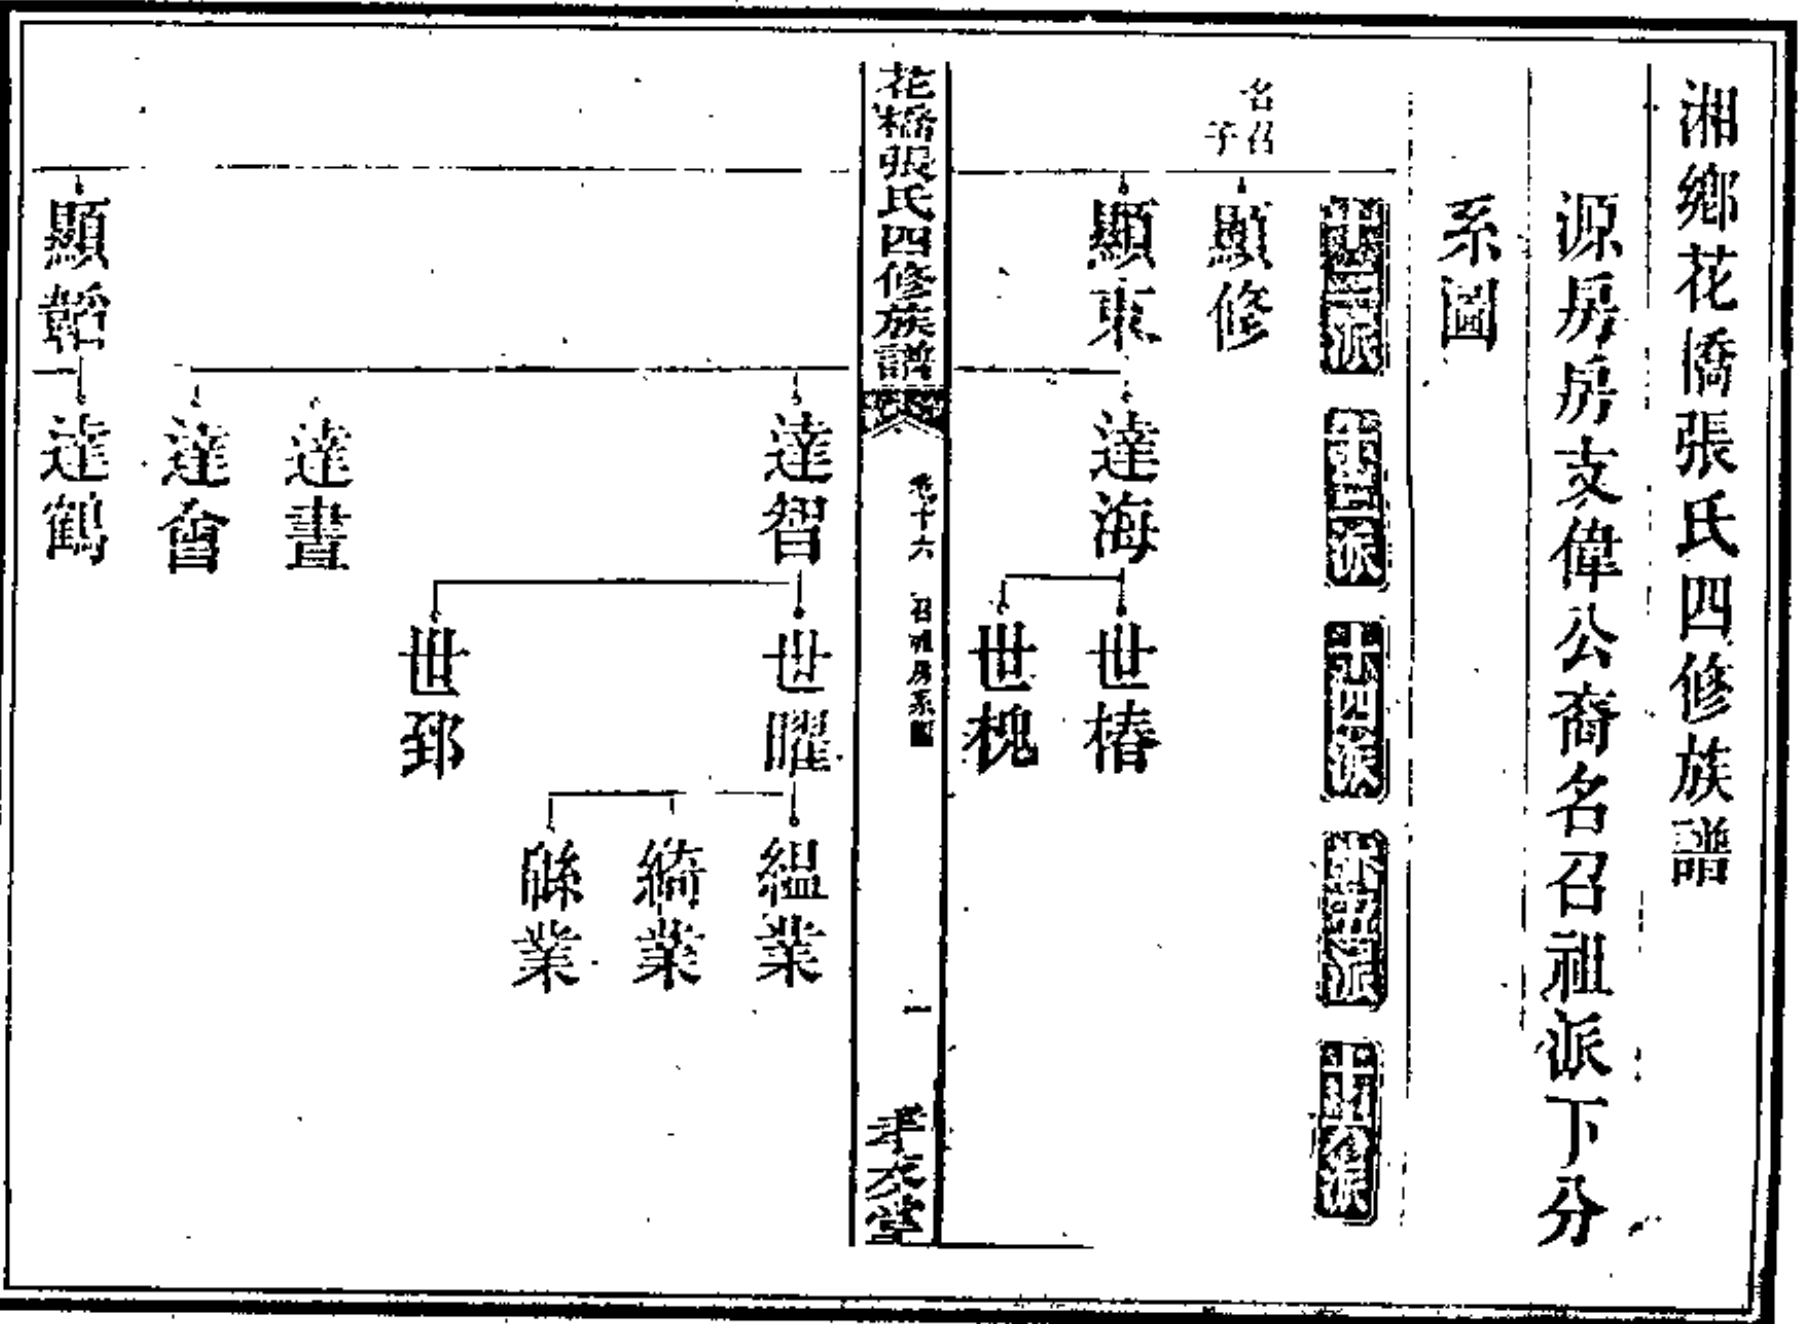 湘鄉花橋張氏四修族譜
源房房支偉公裔名召祖派下分
系圖
十二派
十三派
十四派
十五派
十六派
名召
子
顯修
顯東
達海
世椿
世槐
花橋張氏四修族譜
卷十六
系圖
一
孝友堂
達智
世曜
縕業
綺業
緜業
世郅
達晝
達會
顯韜
達鶴